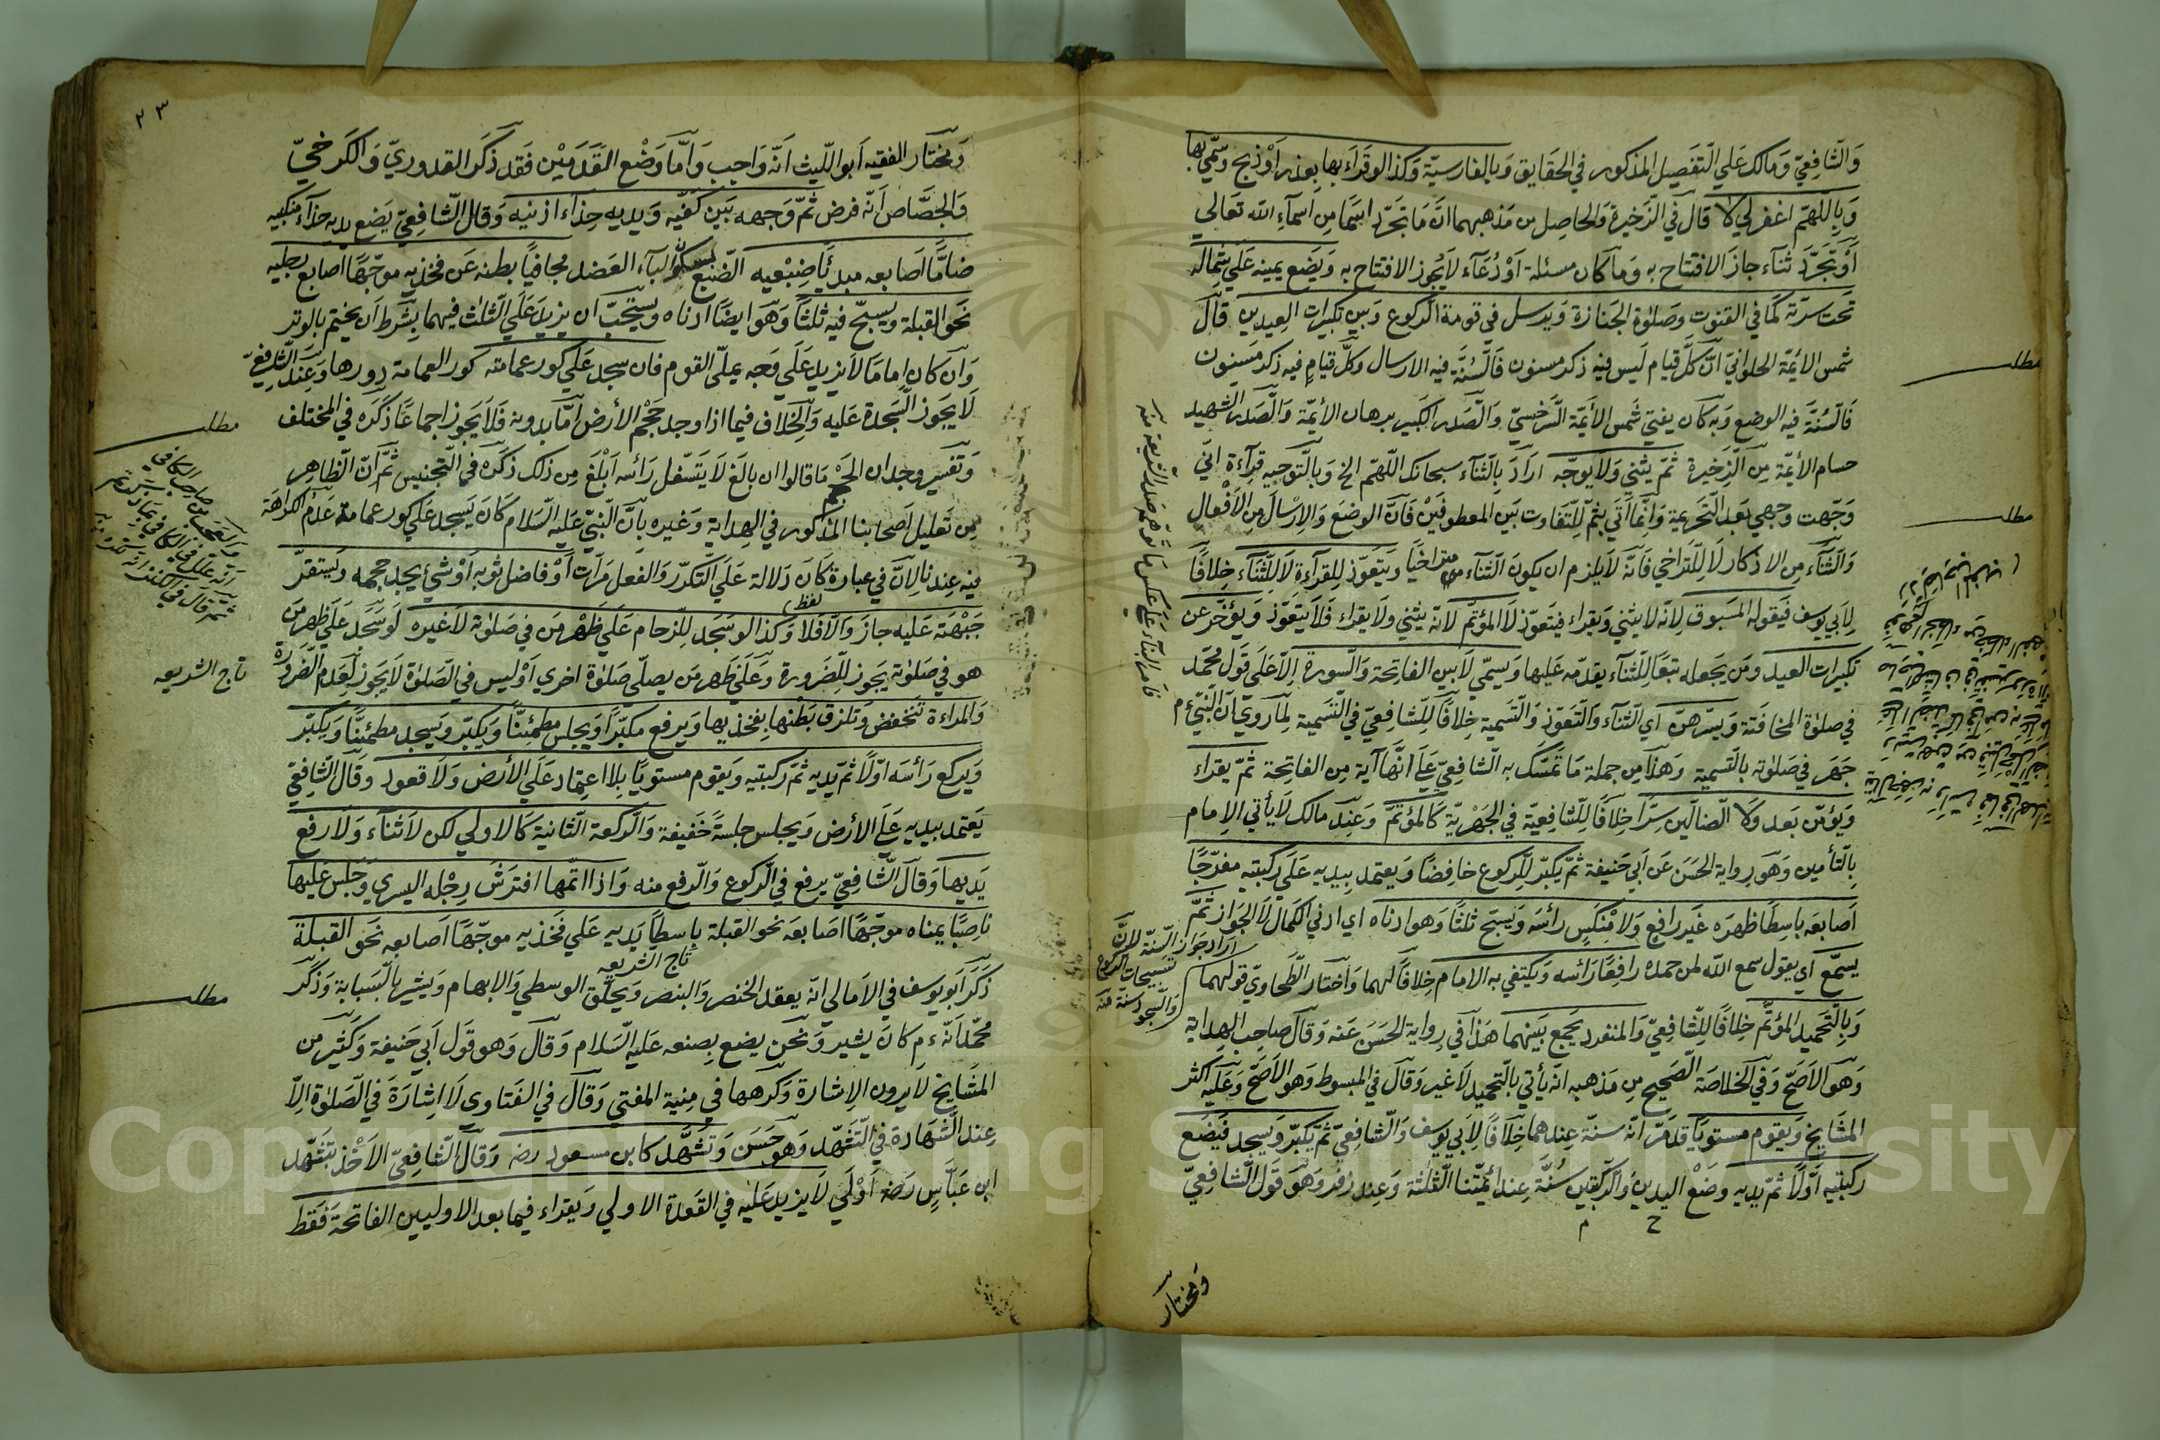 والشافعيّ ومالك علي التفصيل المذكور في الحقايق وبالفارسيّة وكذا لو قراء بها بعذر او ذبح وسمّي بها
وباللهمّ اغفر لي لا قال في الذخيرة والحاصل من مذهبهما انّ ما تجرّد اسما من اسماء الله تعالي
أو تجرّد ثناء جاز الافتتاح به وما كان مسئلة او دُعاء لا يجوز الافتتاح به ويضع يمينه علي شماله
تحت سرّته كما في القنوت وصلوة الجنازة ويرسل في قومة الركوع وبين تكبيرات العيدين قال
شمس الأئمّة الحلوانيّ انّ كلّ قيام ليس فيه ذكر مسنون فالسُنّة فيه الارسال وكلّ قيام فيه ذكر مسنون
فالسُنّة فيه الوضع وبه كان يفتي شمس الأئمّة السَّرَخْسيّ والصّدر الكبير برهان الأئمّة والصّدر الشهيد
حسام الأئمّة من الذخيرة ثمّ يثني ولا يوجّه اراد بالثناء سبحانك اللهمّ الخ وبالتوجيه قراءة انّي
وجّهت وجهي بعد التّحريمة وانّما أتي بثمّ للتفاوت بين المعطوفَيْن فانّ الوضع والارسال من الافعال
والثناء من الاذكار لا للتراخي فانّه لا يلزم ان يكون الثناء متراخيًا ويتعوّذ للقراءة لا للثناء خلافًا
لابي يوسف فيقوله المسبوق لانّه لا يثني ويقراء فيتعوّذ لا المؤتمّ لانّه يثني ولا يقراء فلا يتعوّذ ويؤخّر عن
تكبيرات العيد ومن يجعله تبعًا للثناء يقدّمه عليها ويسمّي لا بين الفاتحة والسورة الّا علي قول محمّد
في صلوة المخافتة ويسرّهنّ اي الثناء والتعوّذ والتسمية خلافًا للشافعيّ في التسمية لما روي انّ النبيّ م
جهر في صلوته بالتسمية وهذا من جملة ما تمسّك به الشافعيّ علي انّها آية من الفاتحة ثمّ يقراء
ويؤمّن بعد ولا الضالين سرًّا خلافًا للشافعيّة في الجهريّة كالمؤتمّ وعند مالك لا يأتي الامام
بالتأمين وهو رواية الحسن عن ابي حنيفة ثمّ يكبّر للركوع خافضًا ويعتمد بيديه علي ركبتيه مفرّجًا
اصابعه باسطًا ظهره غير رافع ولا منكّس رأسه ويسبح ثلثا وهو ادناه اي ادني الكمال لا الجواز ثمّ
يسمّع اي يقول سمع الله لمن حمده رافعًا رأسه ويكتفي به الامام خلافًا لهما واختار الطحاويّ قولهما
وبالتحميد المؤتمّ خلافًا للشافعيّ والمنفرد يجمع بينهما هذا في رواية الحسن عنه وقال صاحب الهداية
وهو الاصحّ وفي الخلاصة الصحيح من مذهبه انّه يأتي بالتحميد لا غير وقال في المبسوط وهو الاصحّ وعليه اكثر
المشايخ ويقوم مستويًا قدمرّ انّه سنّة عندهما خلافًا لابي يوسف والشافعيّ ثمّ يكبّر ويسجد فيضع
ركبتيه اوّلًا ثمّ يديه وضع اليدين والركبتين سُنّة عند أئمّتنا الثلثة وعند زفر وهو قول الشافعيّ
ح م
ويختار
مطلب
مطلب
اراد جواز السنّة لانّ
تسبيحات الركوع
والسجود سنة منه
٢٣
ويختار الفقيه ابو الليث انّه واجب وامّا وضع القدمين فقد ذكر القدوريّ والكرخيّ
والجصّاص انّه فرض ثمّ وجهه بين كفّيه ويديه حذاء اذنيه وقال الشافعيّ يضع يديه حذاء منكبيه
ضامًّا اصابعه مبديًا ضبعيه الضّبع بسكون الباء العضد مجافيًا بطنه عن فخذيه موجّهًا اصابع رجليه
نحو القبلة ويسبّح فيه ثلثًا وهو ايضًا ادناه ويستحبّ ان يزيد علي الثلث فيهما بشرط ان يختم بالوتر
وان كان اماما لا يزيد علي وجه يملّ القوم فان سجد علي كور عمامته كور العمامة دورها وعند الشافعيّ
لا يجوز السّجدة عليه والخلاف فيما اذا وجد حجم الأرض امّا بدونه فلا يجوز اجماعًا ذكره في المختلف
وتفسير وجدان الحجم ما قالوا ان بالغ لا يتسفّل رأسه ابلغ من ذلك ذكره في التجنيس ثمّ انّ الظاهر
من تعليل اصحابنا المذكور في الهداية وغيره بانّ النّبيّ عليه السّلام كان يسجد علي كور عمامته عدم الكراهة
فيه عندنا الّا انّ في عبارة كان دلالة علي التكرّر والفعل مرّات او فاضل ثوبه او شئ يجد حجمه ويستقرّ
جبهته عليه جاز والّا فلا وكذا لو سجد للزحام علي ظهر من في صلوته لا غيره لو سجد علي ظهر من
هو في صلوته يجوز للضرورة وعلي ظهر من يصلّي صلوة اخري او ليس في الصلوة لا يجوز لعدم الضرورة
والمراءة تنخفض وتلزق بطنها بفخذيها ويرفع مكبّرًا ويجلس مطمئنًّا ويكبّر ويسجد مطمئنًّا ويكبّر
ويرفع رأسه اوّلًا ثمّ يديه ثمّ ركبتيه ويقوم مستويًا بلا اعتماد علي الأرض ولا قعود وقال الشافعيّ
يعتمد بيديه علي الأرض ويجلس جلسةً خفيفة والركعة الثانية كالاولي لكن لا ثناء ولا رفع
يديها وقال الشافعيّ يرفع في الركوع والرفع منه واذا اتمّها افترش رجله اليسري وجلس عليها
ناصبًا يمناه موجّهًا اصابعه نحو القبلة باسطًا يديه علي فخذيه موجّهًا اصابعه نحو القبلة
تاج الشريعه
ذكر ابو يوسف في الامالي انّه يعقد الخنصر والبنصر ويحلّق الوسطي والابهام ويشير بالسّبابة وذكر
محمّد انّه م كان يشير ونحن يضع بصنعه عليه السّلام وقال وهو قول ابي حنيفة وكثير من
المشايخ لا يرون الاشارة وكرهها في منية المفتي وقال في الفتاوي لا اشارة في الصلوة الّا
عند الشهادة في التّشهّد وهو حسن وتشهّد كابن مسعود رضه وقال الشافعيّ الاخذ بتشهّد
ابن عبّاس رضه اولي لا يزيد عليه في القعدة الاولي ويقراء فيما بعد الاوليين الفاتحة فقط
مطلب
تاج الشريعه
مطلب
Copyright © King Saud University